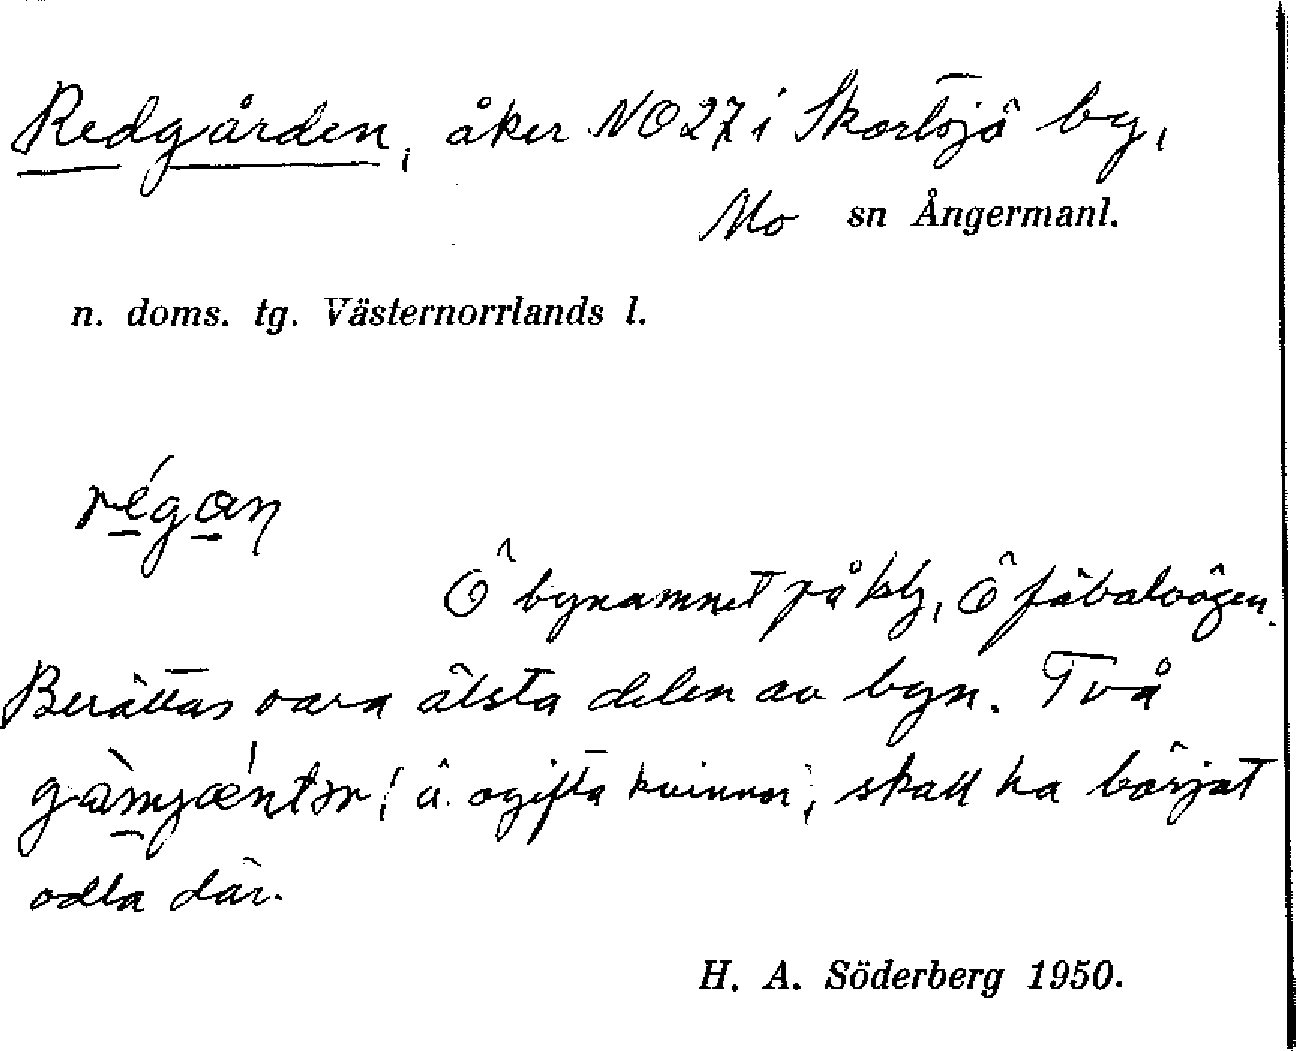 Redgården, åker NO 27 i Skortsjö by,
Mo sn Ångermanl.
n. doms. tg. Västernorrlands l.
régan
Ö bynamnet på kt, Ö fäbodvägen.
Berättas vara älsta delen av byn. Två
gàmjǽntər, (ä. ogifta kvinnor), skall ha börjat
odla där.
H. A. Söderberg 1950.